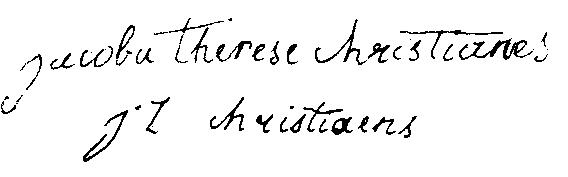 jacoba therese christianes
j L christiaens